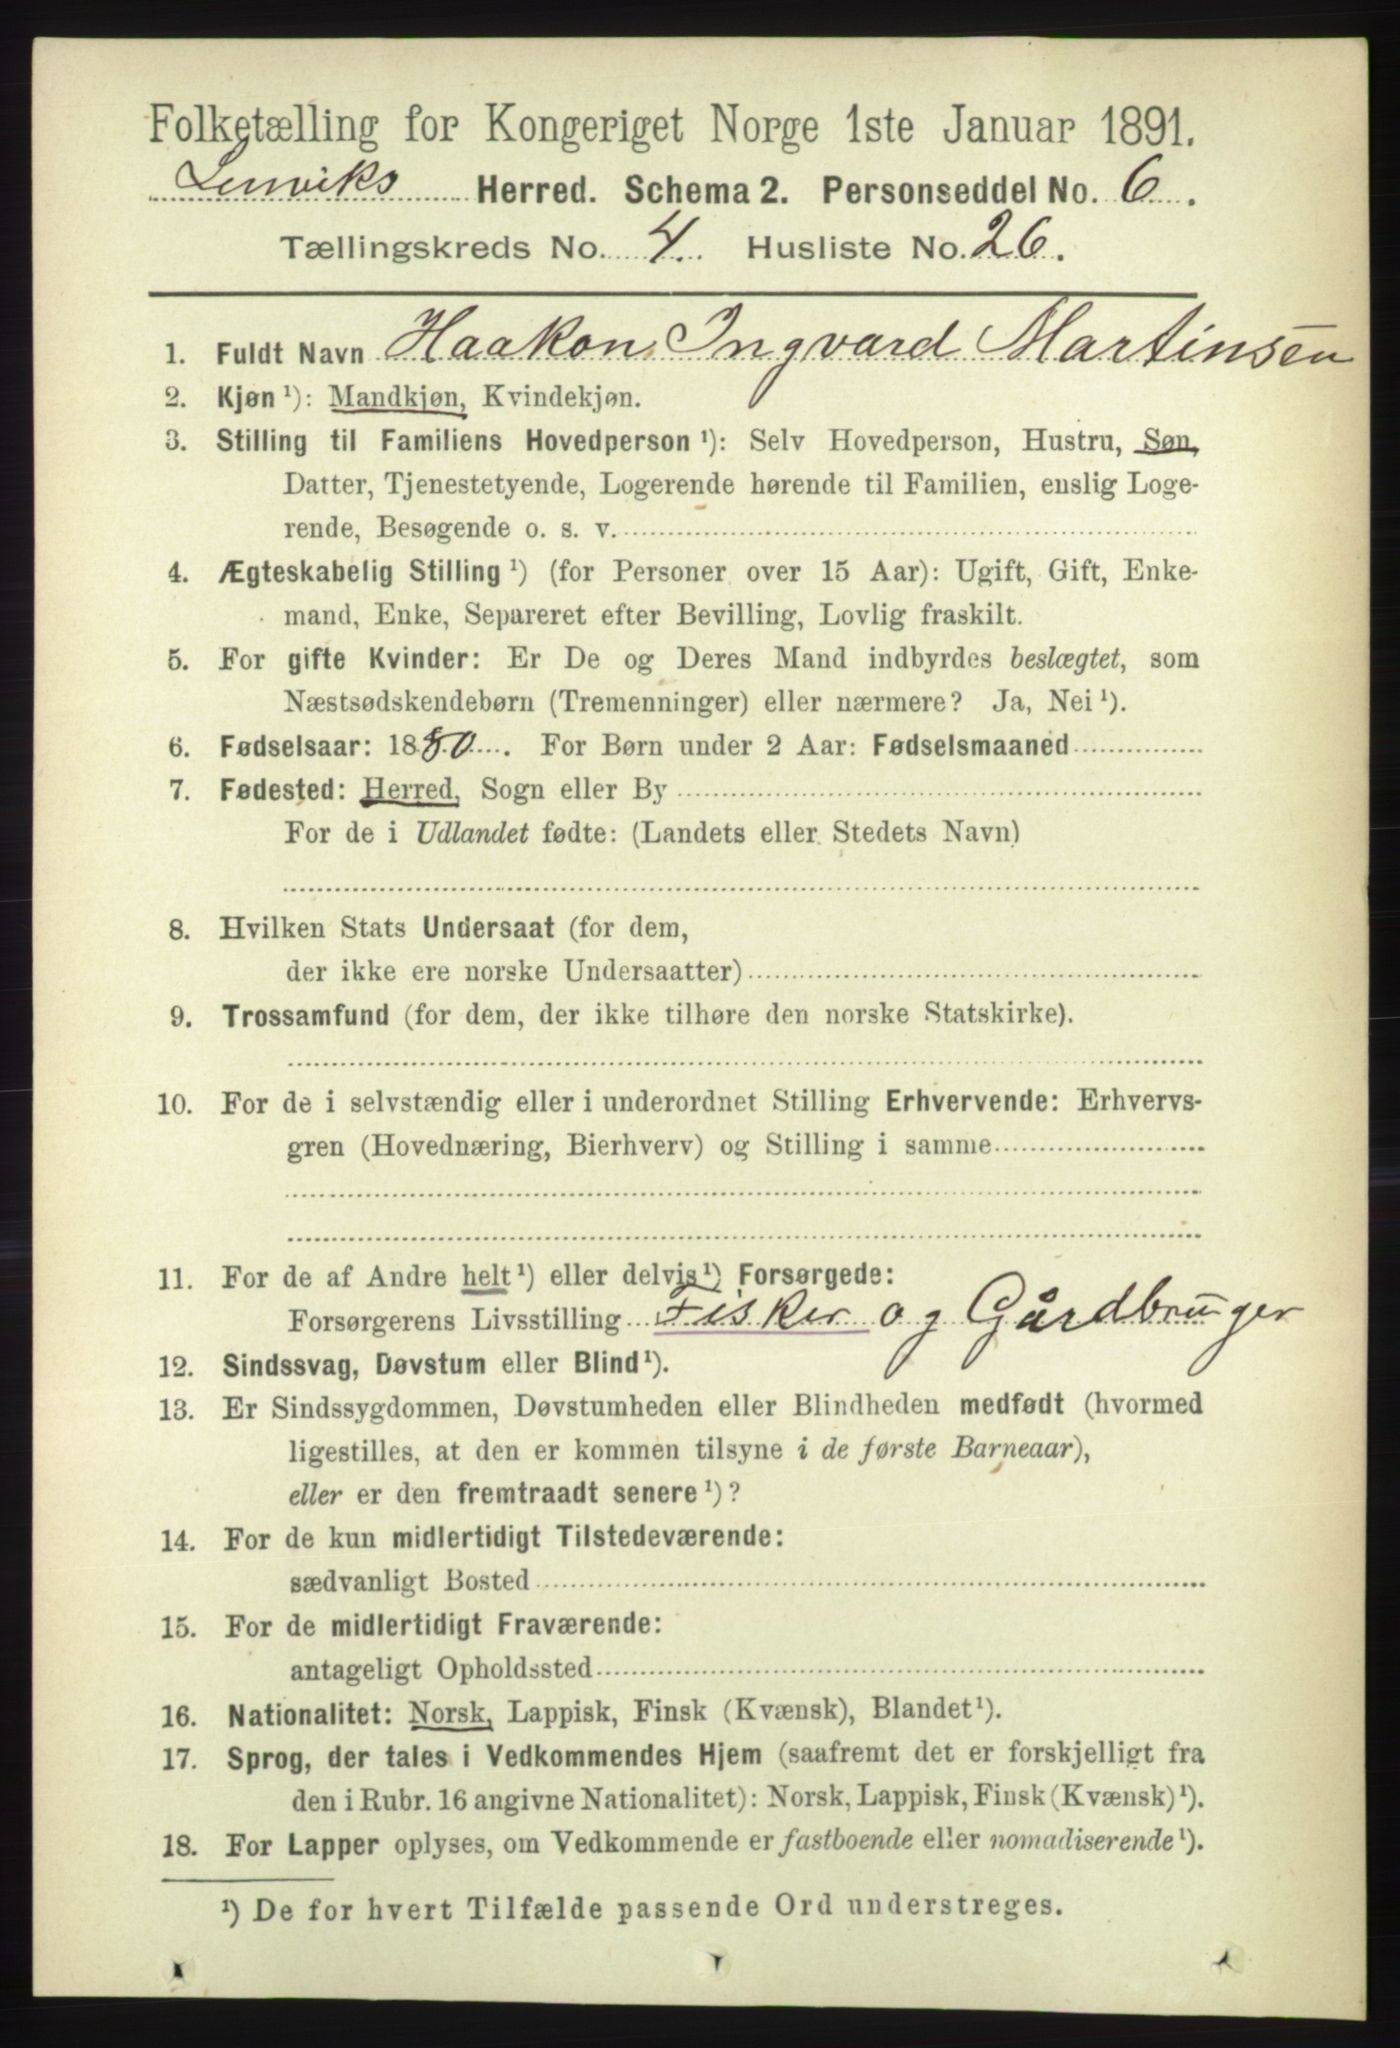 Folketælling for Kongeriget Norge 1ste Januar 1891.
Lenviks Herred. Schema 2. Personseddel No. 6.
Tællingskreds No. 4. Husliste No. 26.
1. Fuldt Navn Haakon Ingvard Martinsen
2. Kjøn ¹): Mandkjøn, Kvindekjøn.
3. Stilling til Familiens Hovedperson ¹): Selv Hovedperson, Hustru, Søn,
Datter, Tjenestetyende, Logerende hørende til Familien, enslig Loge-
rende, Besøgende o. s. v.
4. Ægteskabelig Stilling ¹) (for Personer over 15 Aar): Ugift, Gift, Enke-
mand, Enke, Separeret efter Bevilling, Lovlig fraskilt.
5. For gifte Kvinder: Er De og Deres Mand indbyrdes beslægtet, som
Næstsødskendebørn (Tremenninger) eller nærmere? Ja, Nei ¹).
6. Fødselsaar: 1880. For Børn under 2 Aar: Fødselsmaaned
7. Fødested: Herred, Sogn eller By
For de i Udlandet fødte: (Landets eller Stedets Navn)
8. Hvilken Stats Undersaat (for dem,
der ikke ere norske Undersaatter)
9. Trossamfund (for dem, der ikke tilhøre den norske Statskirke).
10. For de i selvstændig eller i underordnet Stilling Erhvervende: Erhvervs-
gren (Hovednæring, Bierhverv) og Stilling i samme
11. For de af Andre helt ¹) eller delvis ¹) Forsørgede:
Forsørgerens Livsstilling Fisker og Gårdbruger
12. Sindssvag, Døvstum eller Blind ¹).
13. Er Sindssygdommen, Døvstumheden eller Blindheden medfødt (hvormed
ligestilles, at den er kommen tilsyne i de første Barneaar),
eller er den fremtraadt senere ¹)?
14. For de kun midlertidigt Tilstedeværende:
sædvanligt Bosted
15. For de midlertidigt Fraværende:
antageligt Opholdssted
16. Nationalitet: Norsk, Lappisk, Finsk (Kvænsk), Blandet ¹).
17. Sprog, der tales i Vedkommendes Hjem (saafremt det er forskjelligt fra
den i Rubr. 16 angivne Nationalitet): Norsk, Lappisk, Finsk (Kvænsk) ¹).
18. For Lapper oplyses, om Vedkommende er fastboende eller nomadiserende ¹).
¹) De for hvert Tilfælde passende Ord understreges.